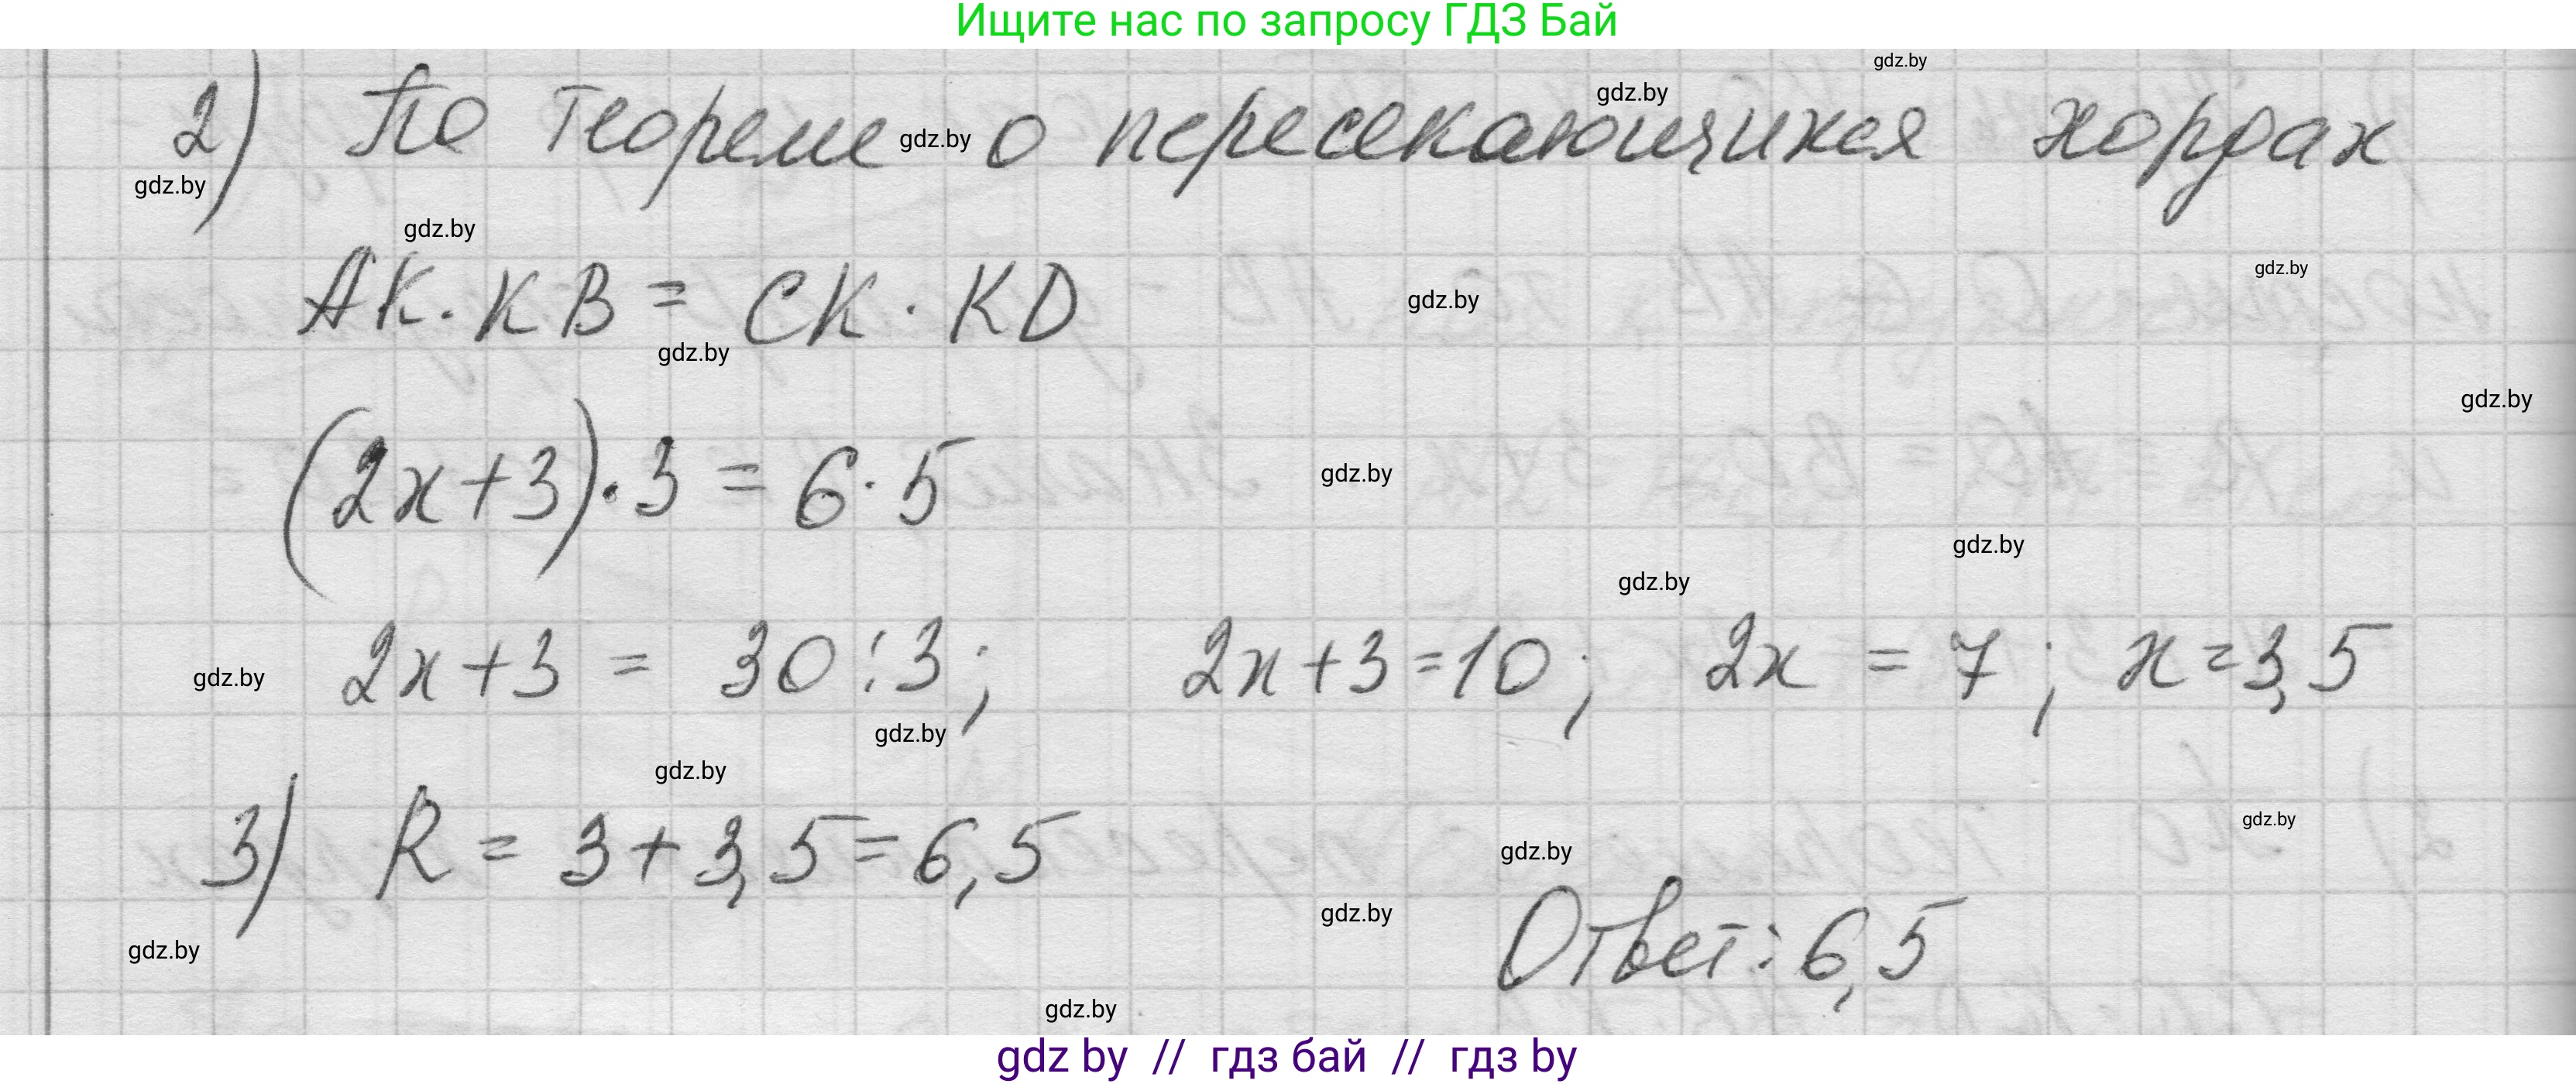 Ищите нас по запросу ГДЗ Бай
gdz.by
gdz.by
2) По теореме о пересекающихся хордах
gdz.by
gdz.by
gdz.by
gdz.by
AK · KB = CK · KD
gdz.by
gdz.by
gdz.by
(2x+3) · 3 = 6 · 5
gdz.by
gdz.by
gdz.by
2x+3 = 30 : 3; 2x+3=10; 2x = 7; x=3,5
gdz.by
gdz.by
gdz.by
3) R = 3+3,5=6,5
gdz.by
gdz.by
gdz.by
Ответ: 6,5
gdz.by
gdz.by
gdz by // гдз бай // гдз by